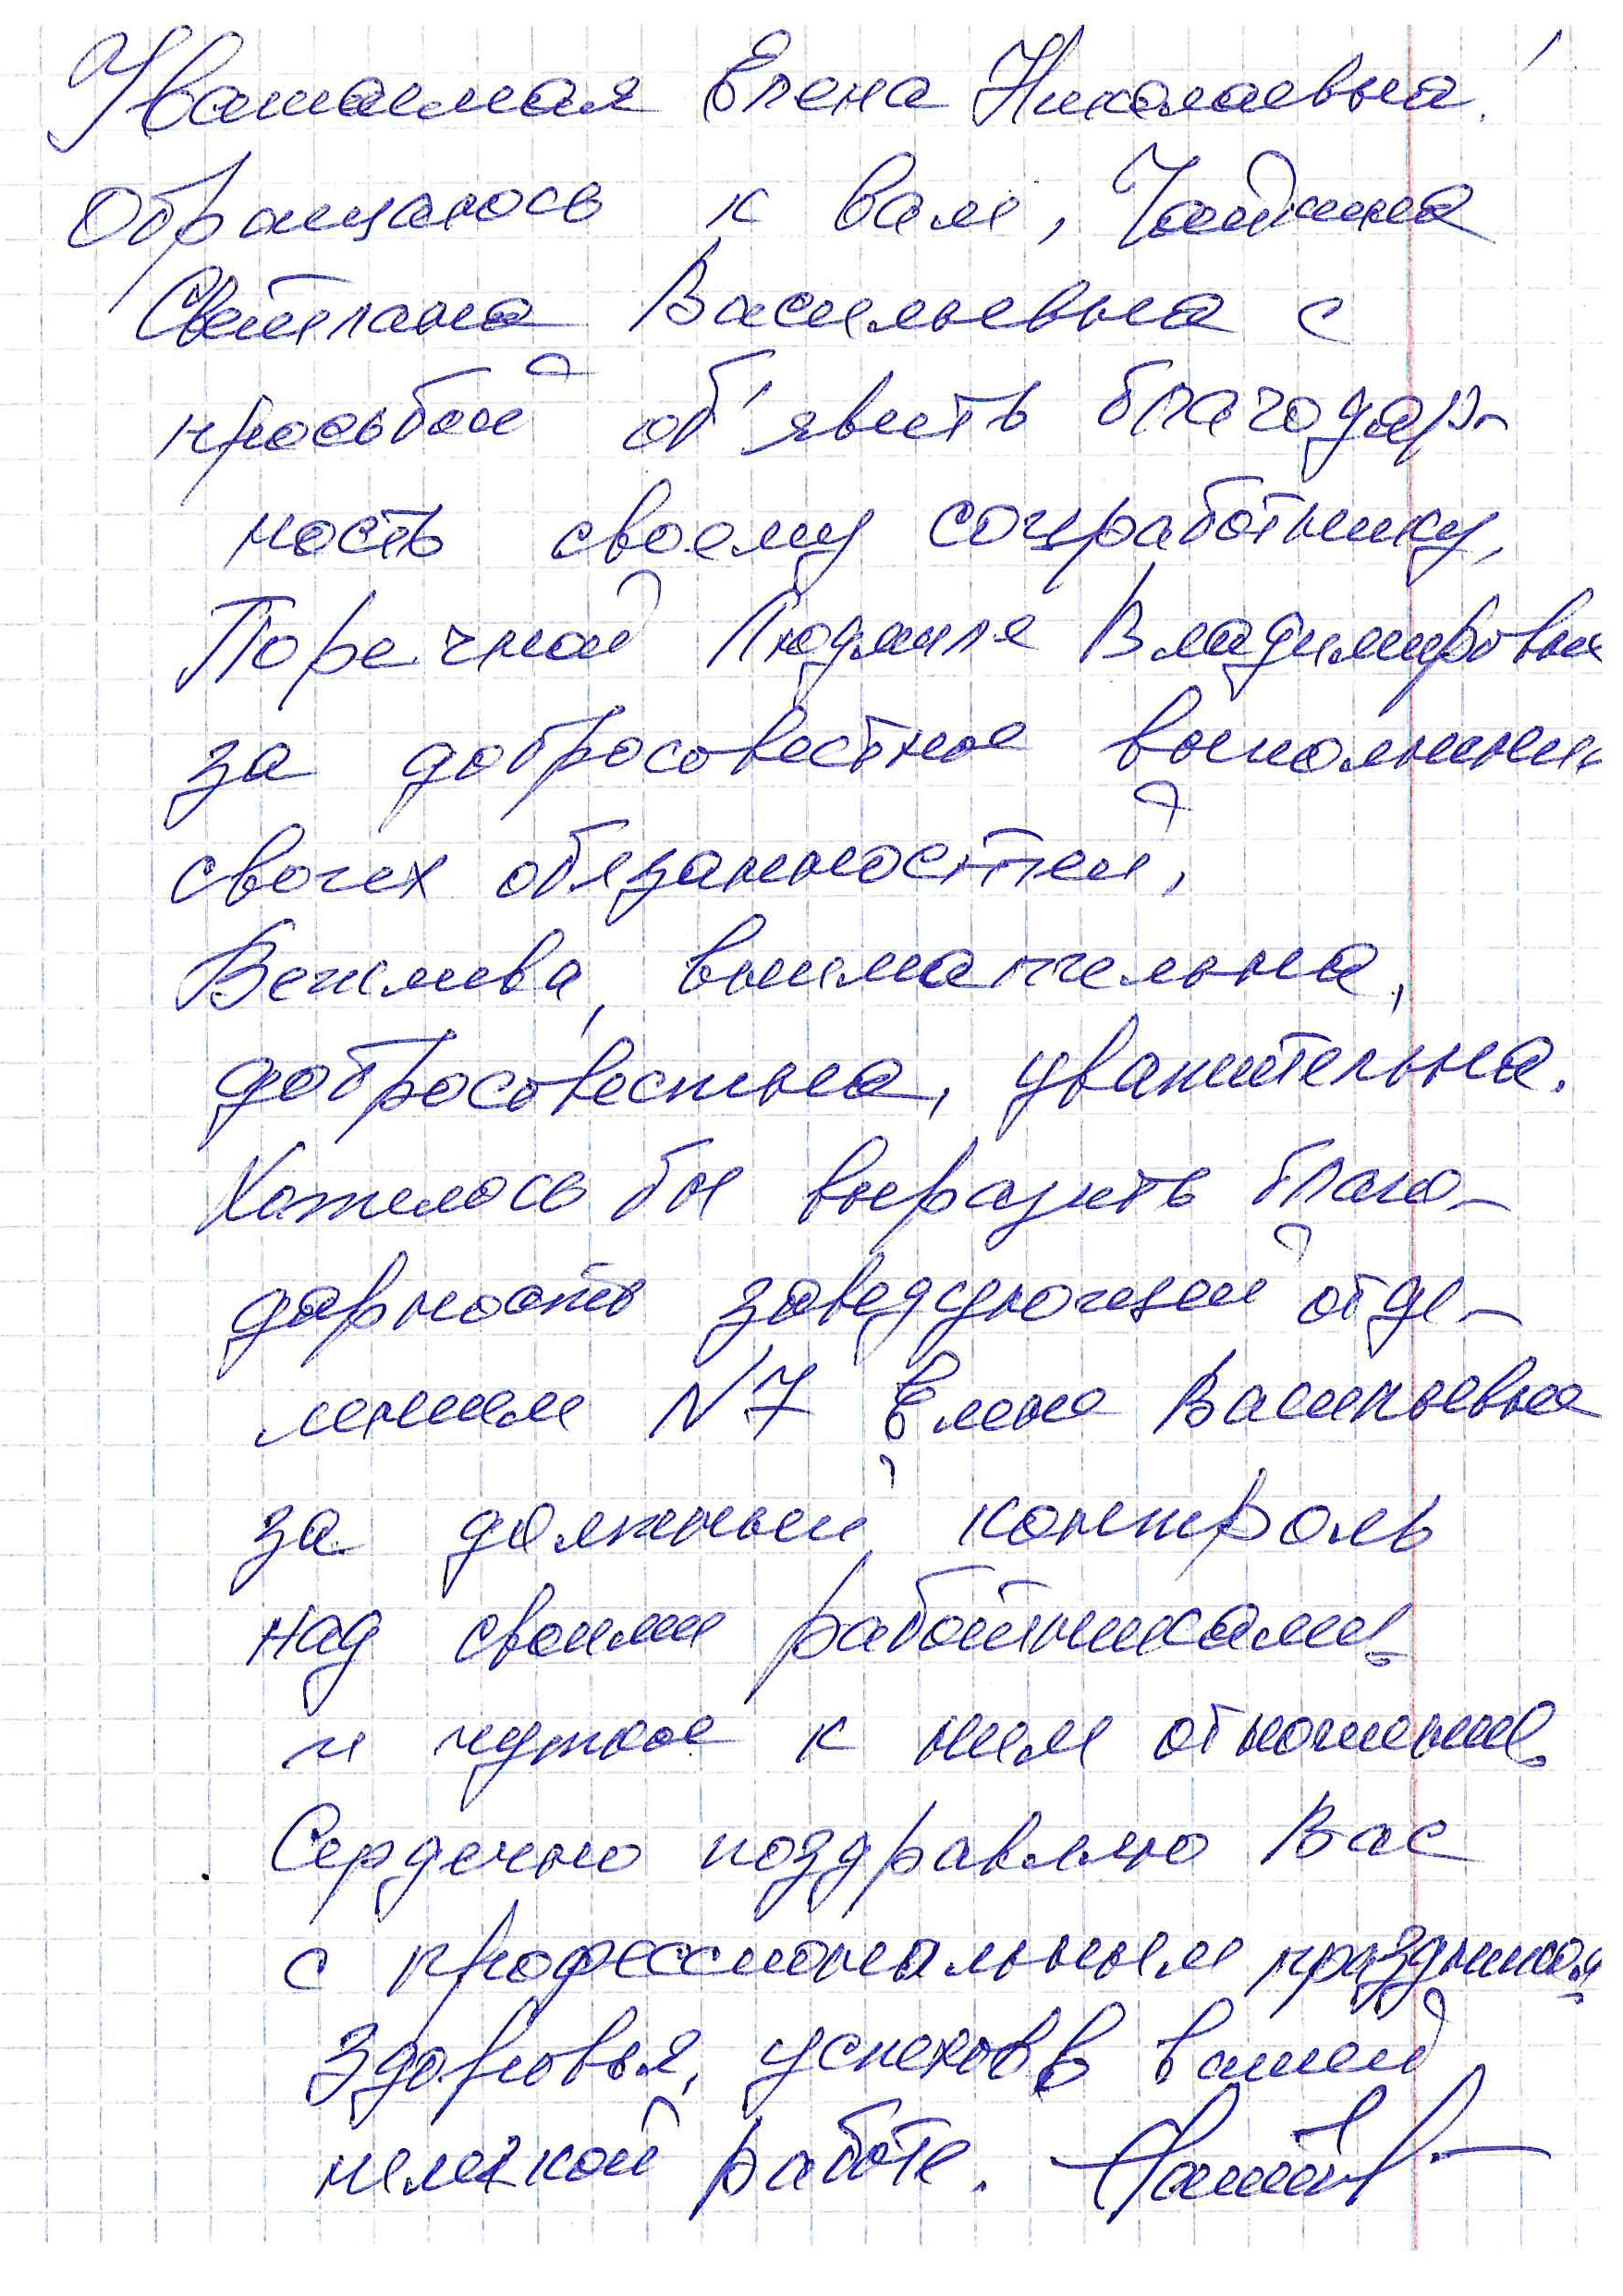 Уважаемая Елена Николаевна!
Обращаюсь к вам,
Светлана Васильевна с
просьбой об'явить благодар-
ность своему соцработнику,
Поречной Людмиле Владимировне
за добросовестное выполнение
своих обязанностей,
Вежлива, внимательна,
добросовестна, уважительна.
Хотелось бы выразить благо-
дарность заведующей отде-
лением N7 Елене Васильевне
за должный контроль
над своими работниками
и чуткое к ним отношение.
Сердечно поздравляю Вас
с профессиональным праздником
Здоровья, успехов в вашей
нелегкой работе.